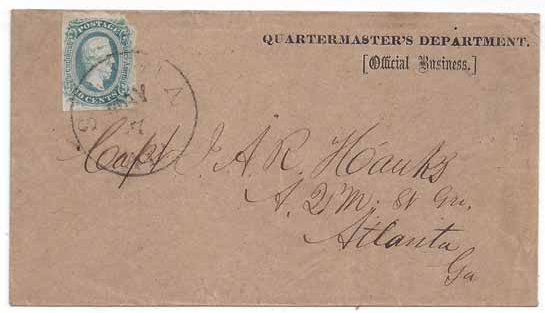 POSTAGE
CENTS
QUARTERMASTER'S DEPARTMENT.
[Official Business.]
Capt J. A. R. Hanks
A. Q M. St Gn.
Atlanta
Ga